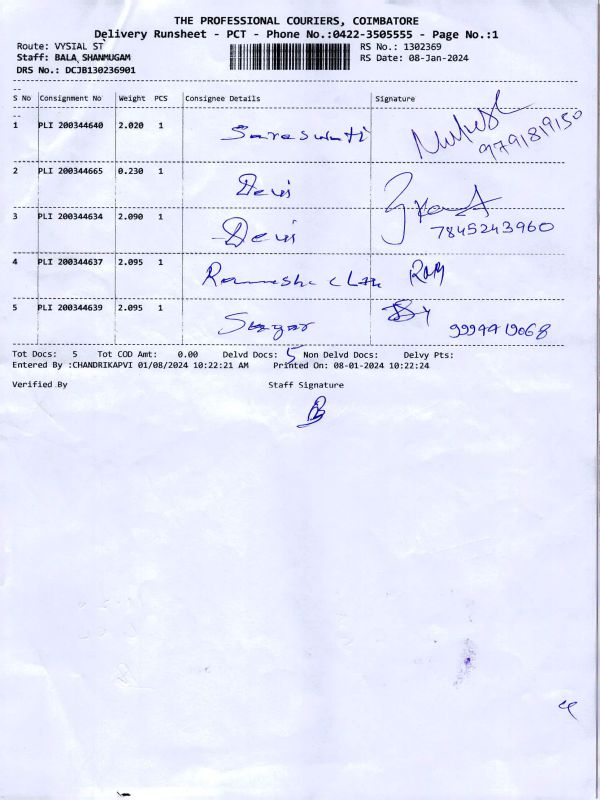 THE PROFESSIONAL COURIERS, COIMBATORE
Delivery Runsheet - PCT - Phone No.:0422-3505555 - Page No.:1
Route: VYSIAL ST RS No.: 1302369
Staff: BALA SHANMUGAM RS Date: 08-Jan-2024
DRS No.: DCJB130236901
S No Consignment No Weight PCS Consignee Details Signature
1 PLI 200344640 2.020 1 Saraswati
9791819150
2 PLI 200344665 0.230 1 Devi
7845243960
3 PLI 200344634 2.090 1 Devi
4 PLI 200344637 2.095 1 Ram
5 PLI 200344639 2.095 1 Sagar
Tot Docs: 5 Tot COD Amt: 0.00 Delvd Docs: 5 Non Delvd Docs: Delvy Pts:
Entered By :CHANDRIKAPVI 01/08/2024 10:22:21 AM Printed On: 08-01-2024 10:22:24
Verified By Staff Signature